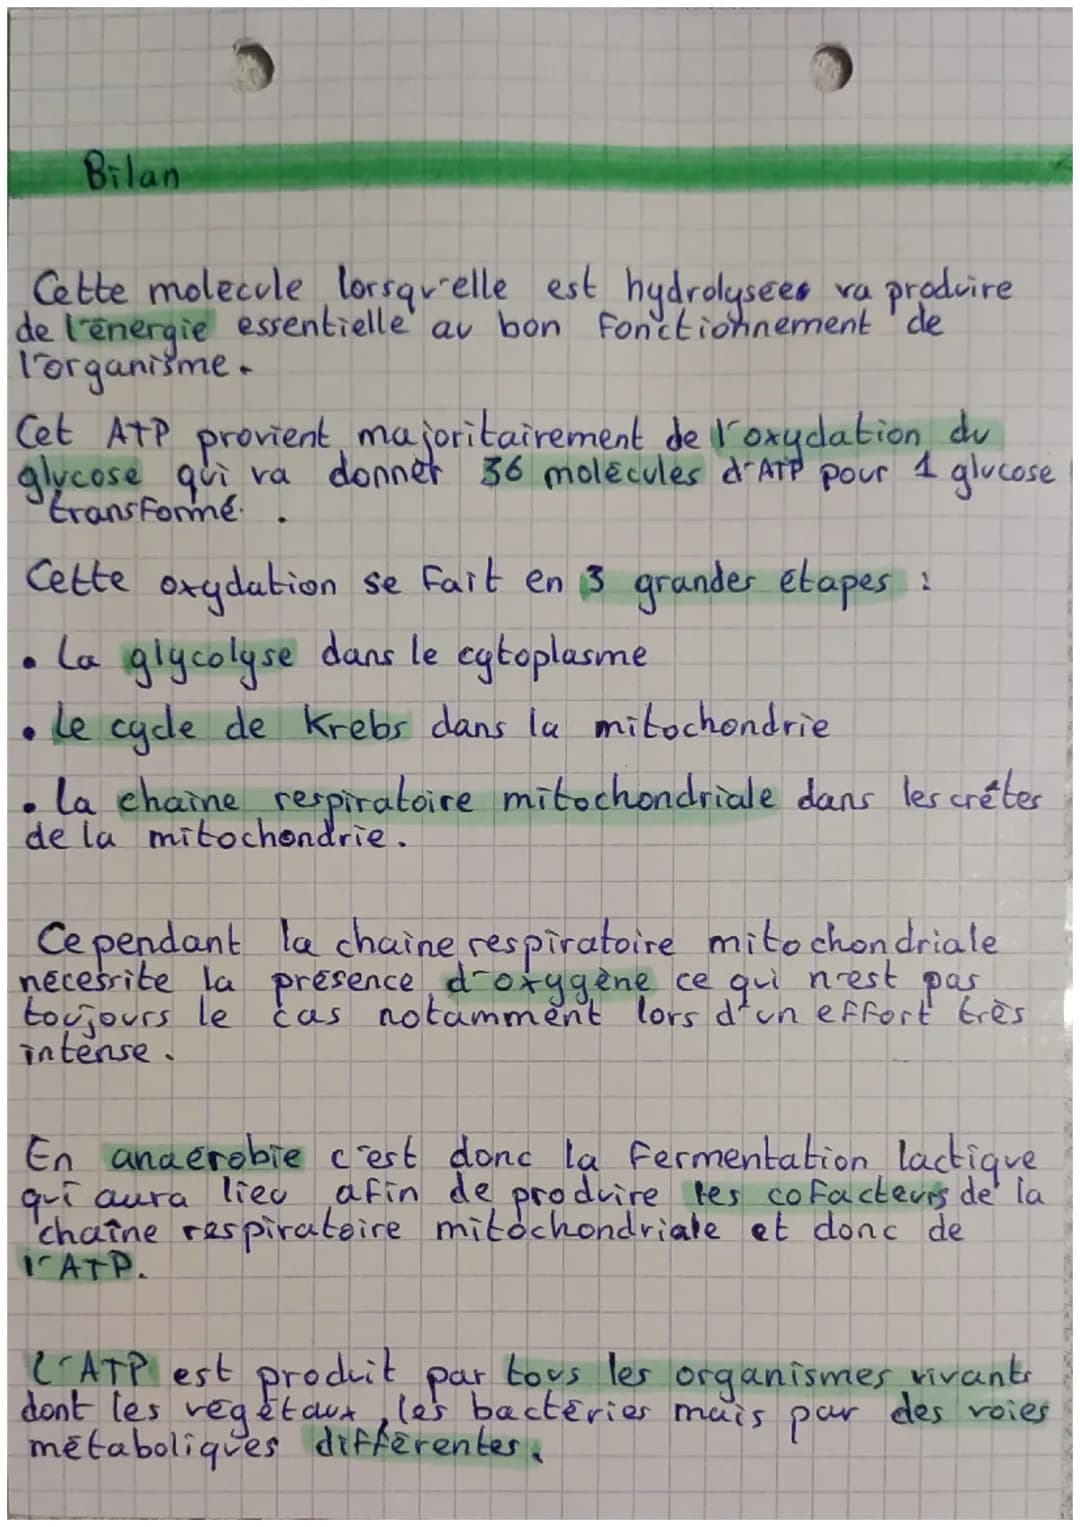 Bilan
Cette molecule lorsqu'elle est hydrolysées va produire
de l'énergie essentielle au bon fonctionnement de
l'organisme.
Cet ATP provient majoritairement de l'oxydation du
glucose qui va donner 36 molécules d'ATP pour 1 glucose
transformé.
Cette oxydation se fait en 3 grandes étapes :
• La glycolyse dans le cytoplasme
• Le cycle de Krebs dans la mitochondrie
• La chaîne respiratoire mitochondriale dans les crêtes
de la mitochondrie.
Cependant la chaîne respiratoire mitochondriale
nécessite la présence d'oxygène ce qui n'est pas
toujours le cas notamment lors d'un effort très
intense.
En anaérobie c'est donc la fermentation lactique
qui aura lieu afin de produire les cofacteurs de la
chaîne respiratoire mitochondriale et donc de
l'ATP.
L'ATP est produit par tous les organismes vivants
dont les végétaux, les bactéries mais par des voies
métaboliques différentes.